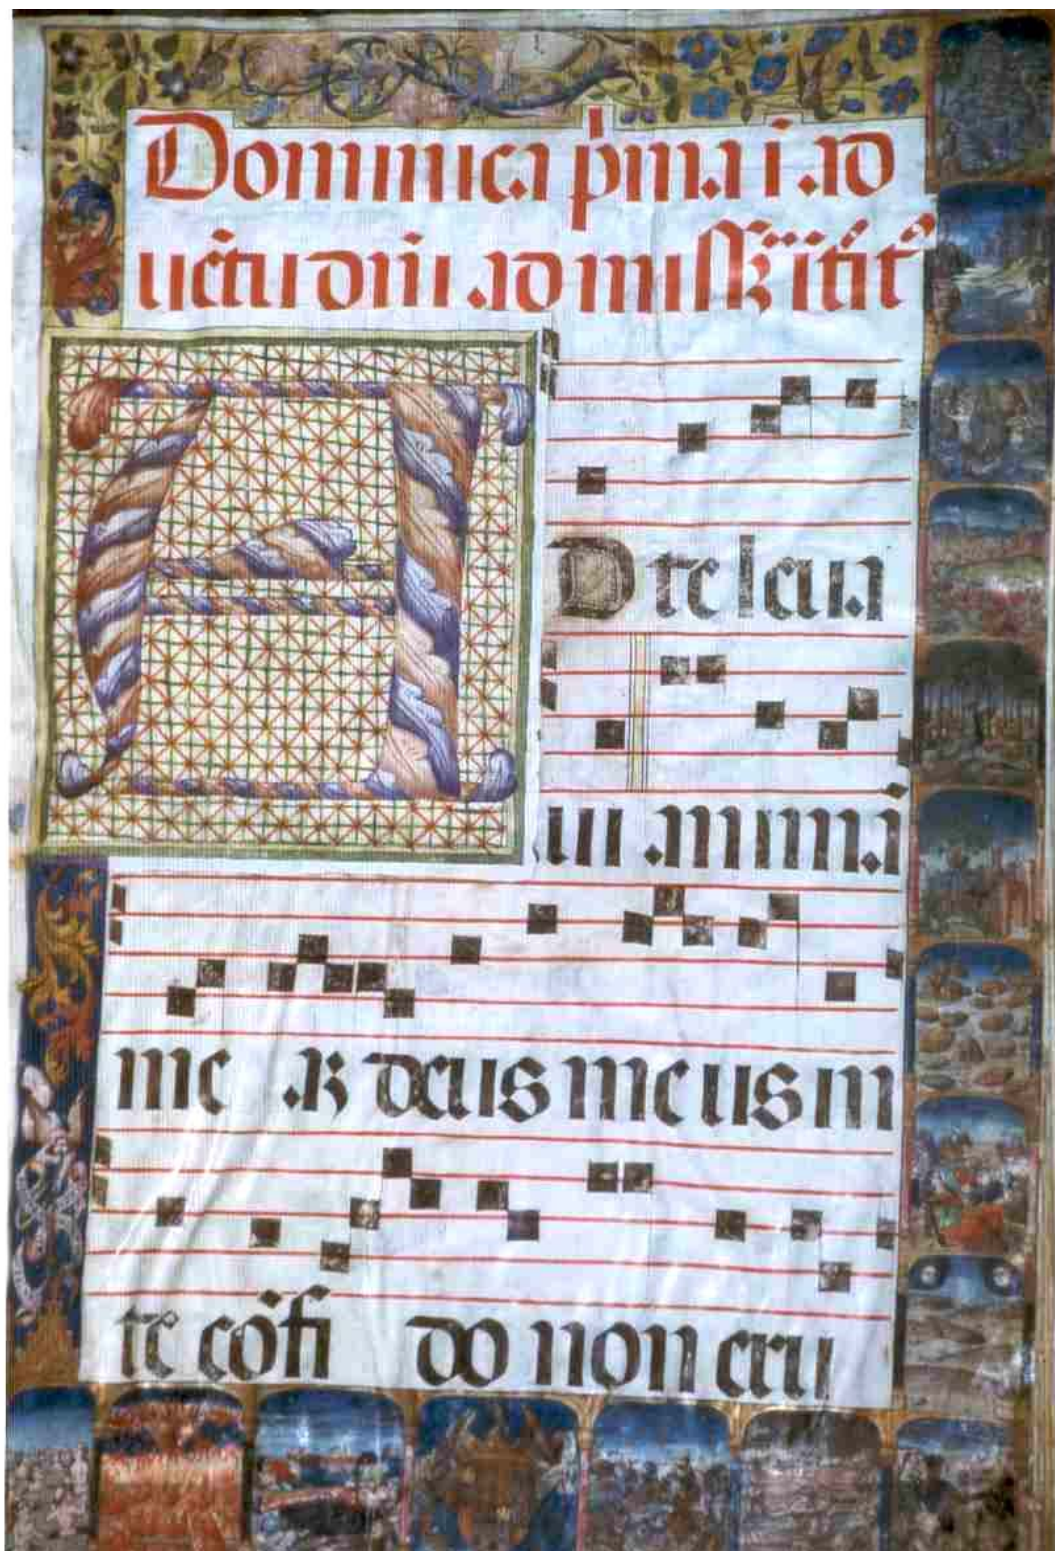 Dominica p̍ima i ad
uētū dnī ad missā ītĩt⁹
AD te leua
ui anima
me ã deus meus in
te cõfi do non eru